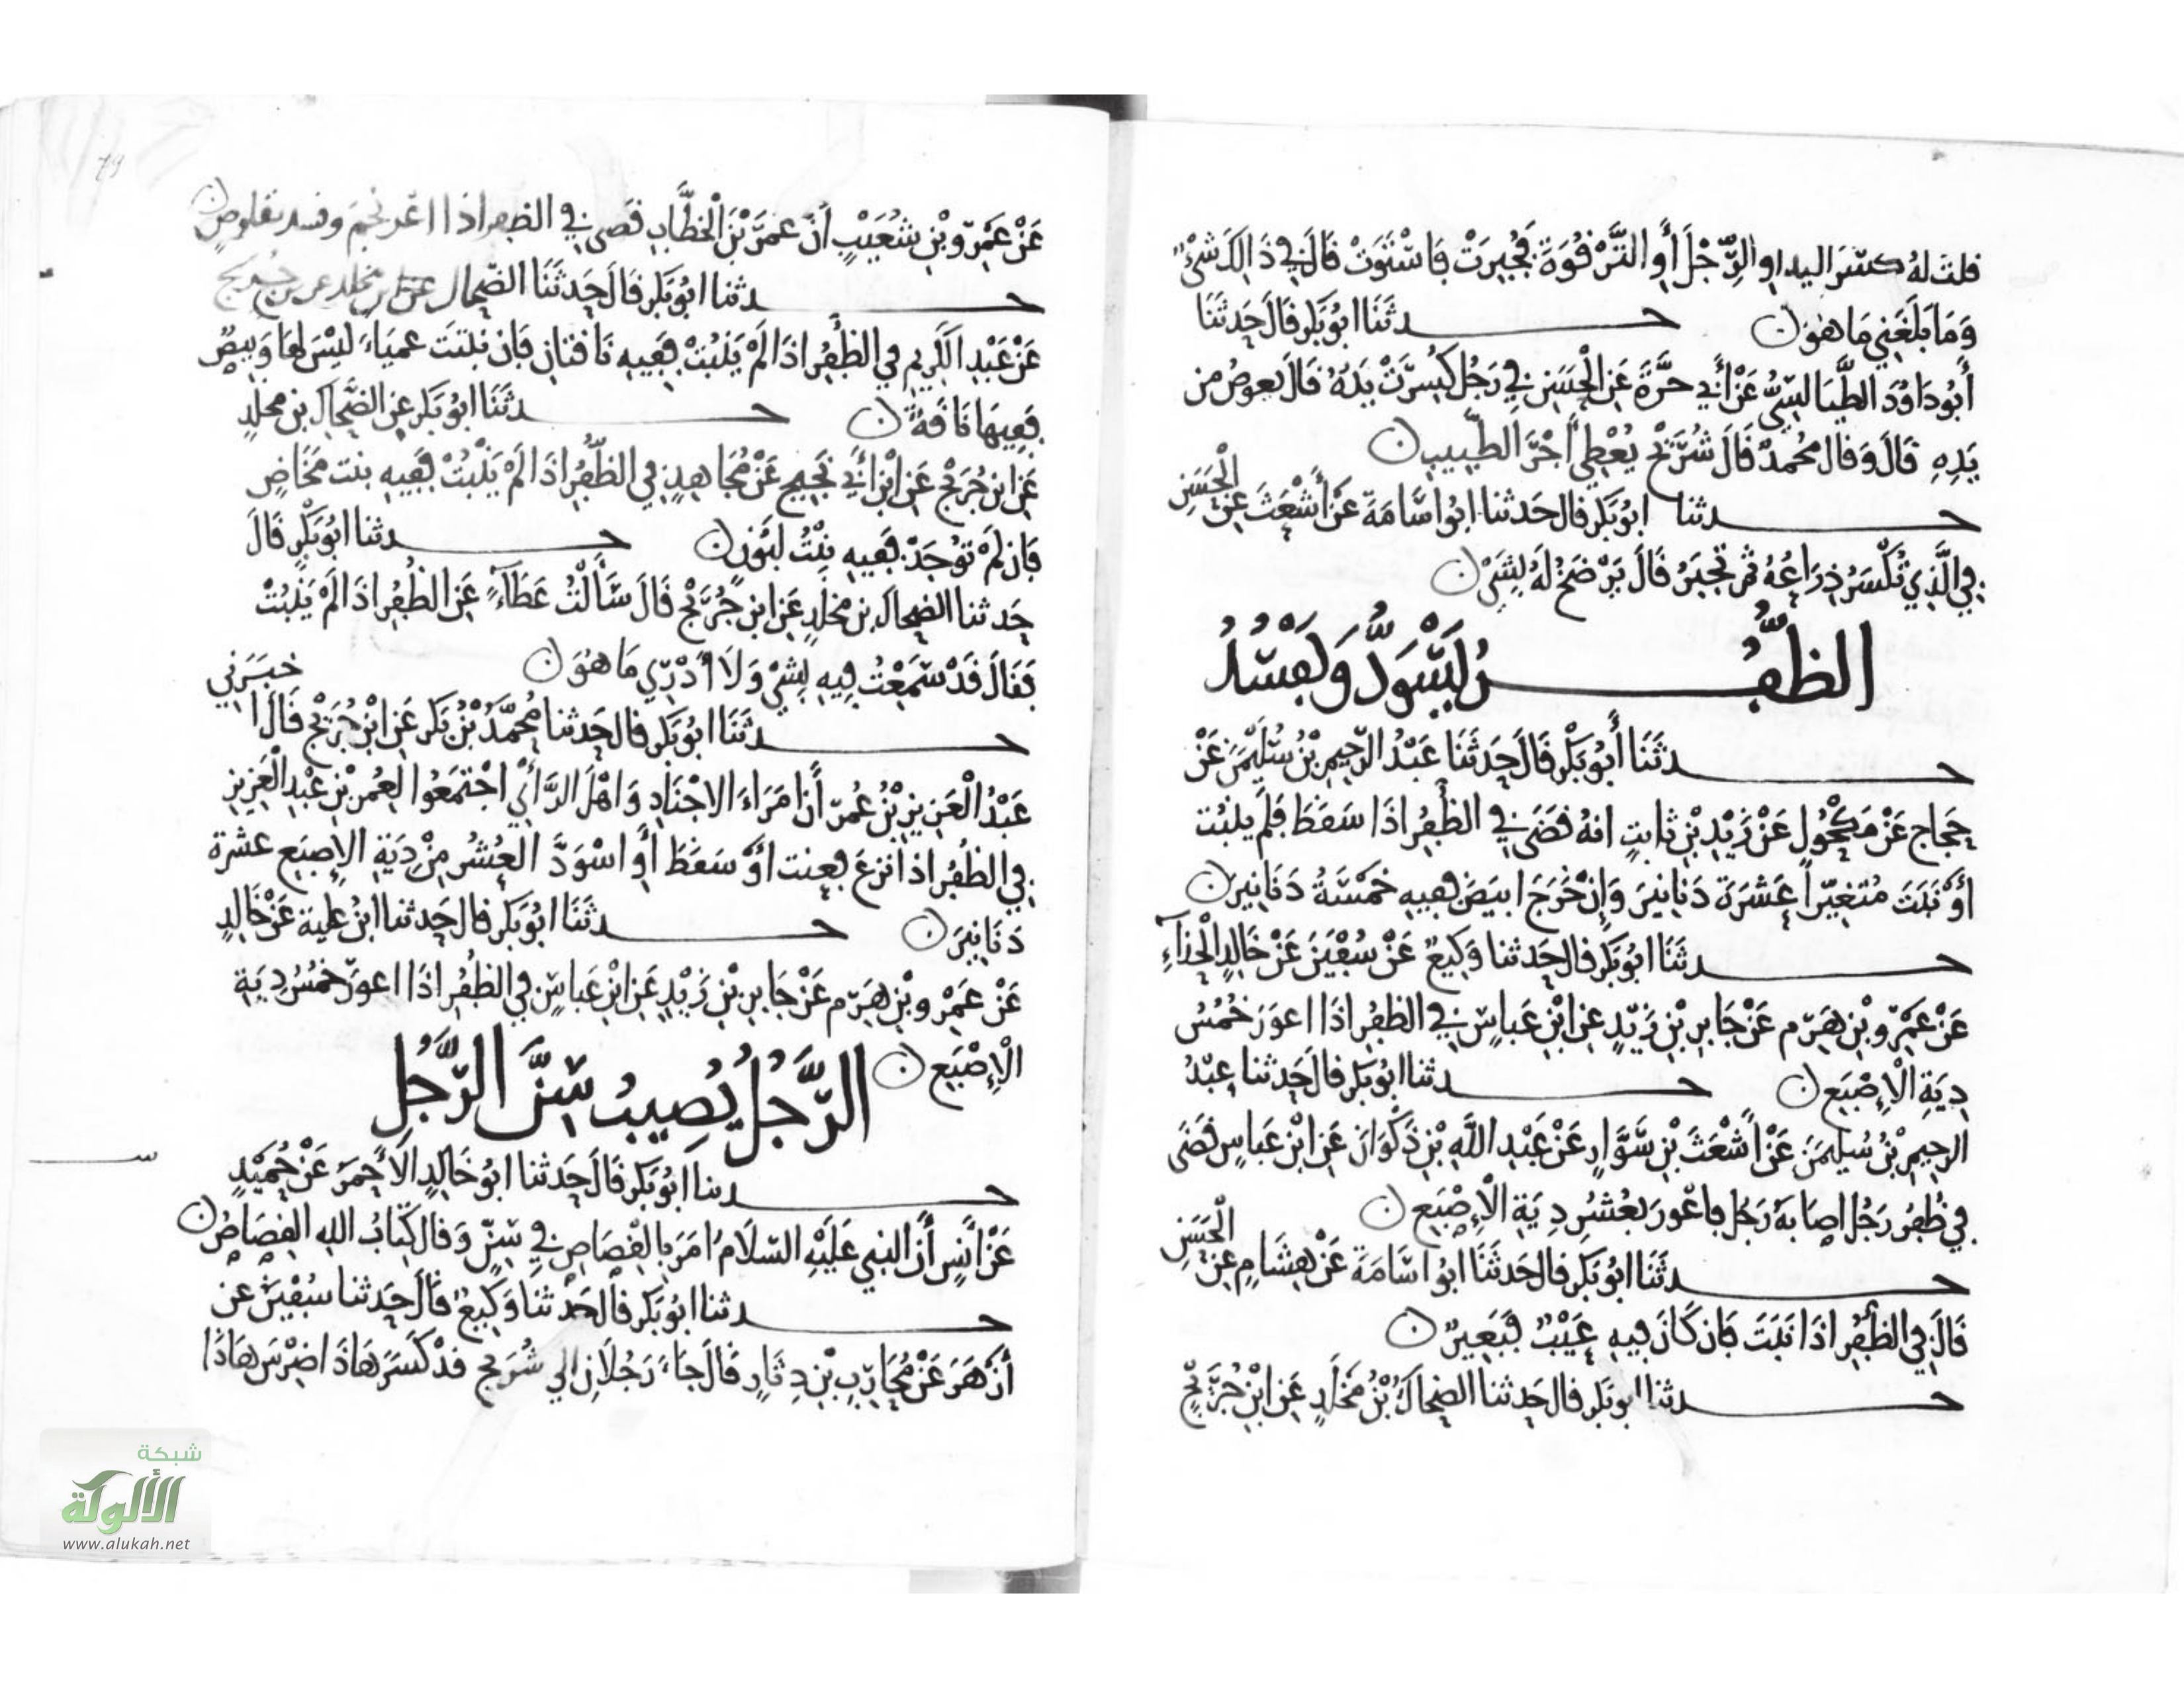 قلت له كسر اليد او الرِّجْلَ أَوِ التَّرْقُوَةَ فَجُبِرَتْ فَاسْتَوَتْ قَالَ فِي ذَالِكَ شَيْءٌ
وَمَا بَلَغَنِي مَا هُوَ ۞ حدثَنَا ابُو بَكر قَالَ حَدثَنَا
أَبُو دَاوُدَ الطَّيَالِسِيُّ عَنْ أَبِي حَرَّةَ عَنِ الْحَسَنِ فِي رَجُلٍ كُسِرَتْ يَدُهُ قَالَ يعوض من
يَدِهِ قَالَ وَقَال مُحُمدٌ قَالَ شُرَيْحٌ يُعْطِي أَجْرَ الطَّبِيبِ ۞
حدثنا ابُو بَكر قال حَدثنا ابُو اسَامَةَ عَنْ أَشْعَثَ عَنِ الْحَسَنِ
فِي الَّذِي تُكْسَرُ ذِرَاعُهُ ثم تجبَرُ قَالَ يَرْضَخُ لَهُ بِشَيْ ۞
الظُّفُرُ يَسْوَدُّ وَيَفْسُدُ
حدثَنَا أَبُو بَكْر قَالَ حَدثَنَا عَبْدُ الرَّحِيمِ بْنُ سُلَيْمَنَ عَنْ
حَجاج عَنْ مَكْحُولٍ عَنْ زَيْدِ بْنِ ثابتٍ انهُ قَضَى فِي الظُّفُرِ اذَا سَقَطَ فَلَمْ يَنْبُت
أَوْ نَبَتَ مُتغيّراً عَشَرَة دَنانِيرَ وَإِنْ خَرَجَ ابيَضَ فَفِيهِ خَمْسَةُ دَنَانِيرَ ۞
حدثَنَا ابُو بَكر قال حَدثنا وَكِيعٌ عَنْ سُفْيَنَ عَنْ خَالِدٍ الْحَذآءِ
عَنْ عَمْرِو بْنِ هَرِم عَنْ جَابِرِ بْنِ زَيْدٍ عن ابْنِ عَباسٍ فِي الظفرِ اذَا اعوَرَ خُمُسُ
دِيَةِ الْإِصْبَعِ ۞ حدثنا ابُو بَكر قال حَدثنا عبْدُ
الرحِيمِ بْنُ سُليمَنَ عَنْ أَشْعَثَ بْنِ سَوَّارٍ عَنْ عَبْدِ اللَّهِ بْنِ ذَكْوَان عَنِ ابْنِ عَباسٍ قَضَى
فِي ظُفُرِ رَجُلٍ اصَابَهُ رَجُل فاعْوَر بعُشْرِ دِيَةِ الْإِصْبَعِ ۞
حدثَنَا ابُو بَكر قال حَدثَنَا ابُو اسَامَةَ عَنْ هِشَامٍ عَنِ الْحَسَنِ
قَالَ فِي الظُّفُرِ اذَا نَبَتَ فَان كَانَ فِيهِ عَيْبٌ فَبَعِيرٌ ۞
حدثنا ابو بَكر قال حَدثنا الضحاكُ بْنُ مَخْلَدٍ عَنِ ابْنِ جُرَيْجٍ
عَنْ عَمْرِو بْنِ شُعَيْبٍ أَنَّ عمَرَ بْنَ الْخَطَّابِ قَضَى فِي الظفر اذَا اعر وفسد بقلوصٍ ۞
حدثنا ابُو بَكر قَالَ حَدثَنَا الضحاك بن مخلد عن ابن جُريج
عَنْ عَبْدِ الكَرِيم فِي الظُّفُرِ اذَا لَمْ يَنْبُتْ فَفِيهِ نَاقتانِ فَان نَبتَت عميَاءَ لَيْسَ لهَا وَبِيصٌ
فَفِيهَا نَاقَةٌ ۞ حدثَنَا ابُو بَكر عن الضَّحاكِ بن مخلدٍ
عَنِ ابن جُرَيْجٍ عَنِ ابْنِ أَبِي نَجِيحٍ عَنْ مُجَاهِدٍ فِي الظُّفُرِ اذَا لَمْ يَنْبُتْ فَفِيهِ بنت مَخَاضٍ
فَان لَمْ تُوْجَدْ فَفِيهِ بِنْتُ لَبُوْنٍ ۞ حدثنا ابُو بَكْرٍ قَالَ
حَدثنا الضحاك بن مخلَدٍ عَنِ ابن جُرَيْجٍ قَالَ سَأَلْتُ عَطَآءً عَنِ الظُّفُرِ اذَا لَمْ يَنْبُتْ
فَقَالَ قَدْ سَمِعْتُ فِيهِ بِشَيْ وَلَا أَدْرِي مَا هُوَ ۞
حدثَنَا ابُو بَكر قال حَدثنا مُحمَّدُ بْنُ بَكر عَنِ ابْنِ جُرَيْجٍ قَالَ اخبَرَنِي
عَبْدُ الْعَزِيزِ بْنُ عُمَرَ أَن امَرَاءَ الاجْنَادِ وَاهْلَ الرَّأْيِ اجْتَمَعُوا لِعُمَر بْنِ عَبْدِ الْعَزِيزِ
فِي الظُفُرِ اذا نزعَ فعِنت أَوْ سَقَطَ أَوِ اسْوَدَّ العُشْرُ مِنْ دِيَةِ الإصبَعِ عشرة
دَنَانِيرَ ۞ حدثَنَا ابُو بَكر قال حَدثنا ابنُ علية عَنْ خَالِدٍ
عَنْ عَمْرِو بْنِ هَرِم عَنْ جَابِرِ بْنِ زَيْدٍ عَنِ ابْنِ عَباسٍ فِي الظُفُرِ اذَا اعوَرَّ خُمُسُ دِيَةِ
الْإِصْبَعِ ۞ الرَّجُلُ يُصِيبُ سِنَّ الرَّجُلِ
حدثنا ابُو بَكر قَالَ حَدثنا ابُو خَالِدٍ الَأحمَرُ عَنْ حُمَيْدٍ
عَنْ أَنَسٍ أَنَّ النبي عَلَيْهِ السّلَامُ امَرَ بِالقِصَاصِ فِي سِنٍّ وَقال كِتَابُ اللهِ القِصَاصُ ۞
حدثنا ابُو بَكر قَال حَدثنَا وَكِيعٌ قَالَ حَدثنا سُفْيَنُ عن
أَزْهَرَ عَنْ مُحَارِبِ بْنِ دِثَارٍ قَالَ جَاءَ رَجُلَانِ الي شُرَيْحٍ قدْ كَسَرَ هَاذَا ضِرْسَ هَاذَا
شبكة
الألوكة
www.alukah.net